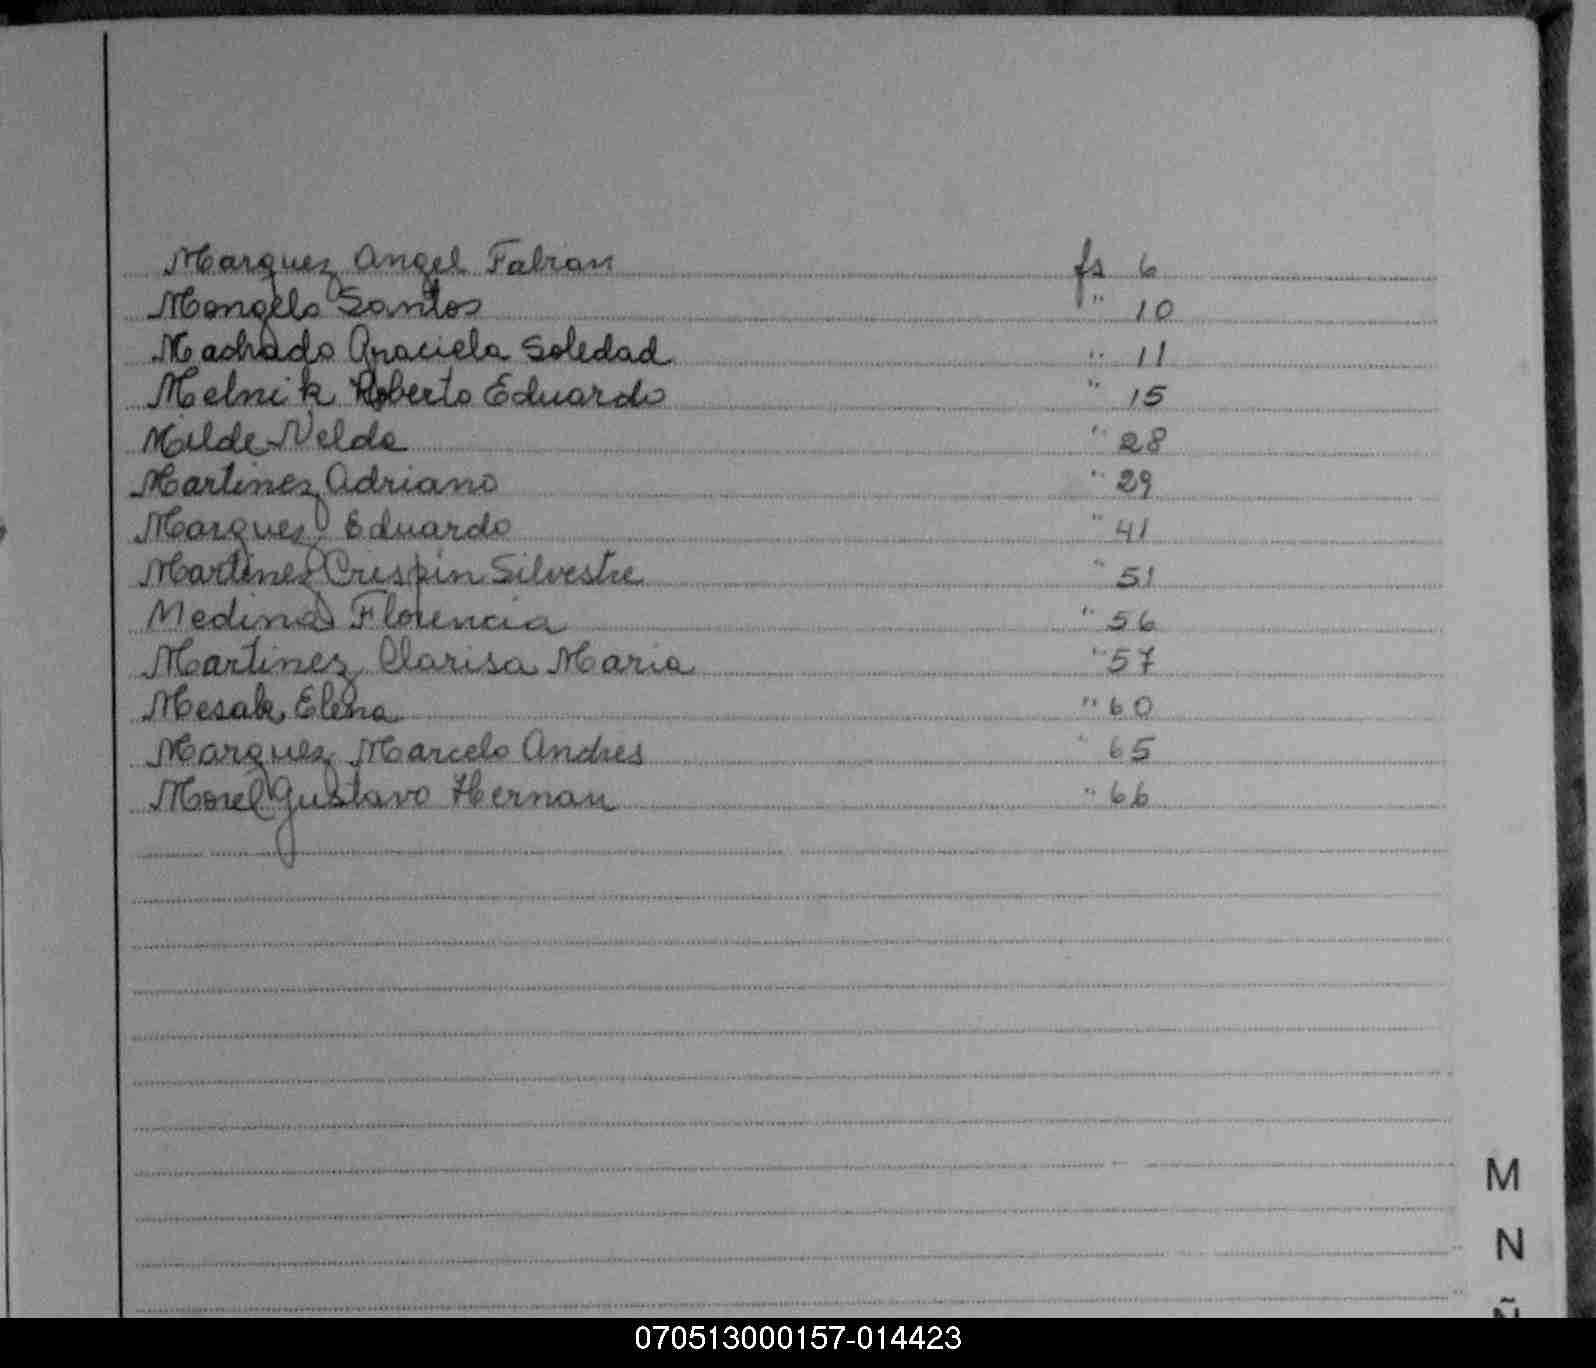 Marquez Angel Fabian fs 6
Mongelo Santos " 10
Machado Graciela Soledad " 11
Melnik Roberto Eduardo " 15
Milde Nelda " 28
Martinez Adriano " 29
Marquez Eduardo " 41
Martinez Crispin Silvestre " 51
Medina Florencia " 56
Martinez Clarisa Maria " 57
Elena " 60
Marquez Marcelo Andres " 65
Morel Gustavo Hernan " 66
M
N
Ñ
070513000157-014423